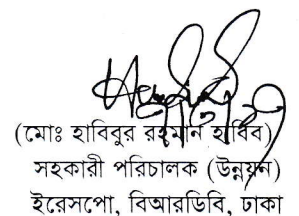 (মোঃ হাবিবুর রহমান হাবিব)
সহকারী পরিচালক (উন্নয়ন)
ইরেসপো, বিআরডিবি, ঢাকা